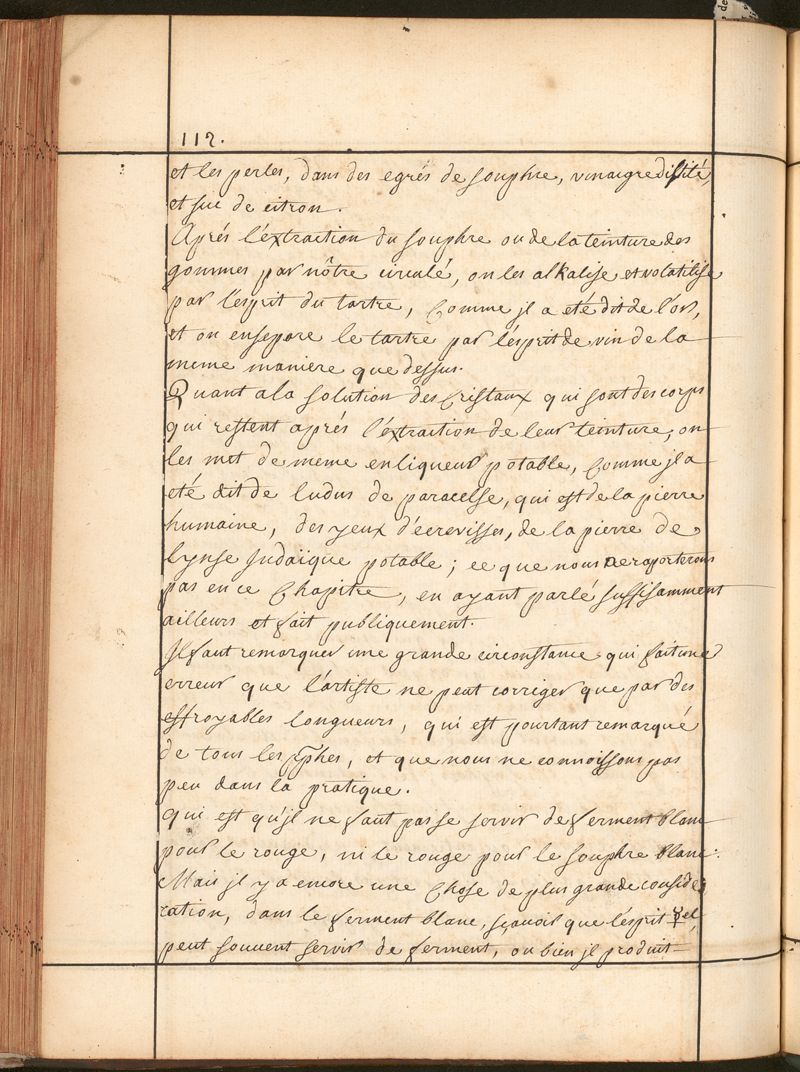 112.
et les perles, dans des egrés de souphre, vinaigre distilé,
et suc de citron.
Aprés l'éxtraction du souphre ou de la teinture des
gommes par nôtre circulé, on les alkalise et volatilise
par l'ésprit du tartre, Comme jl a eté dit de l'or,
et on ensepare le tartre par l'ésprit de vin de la
meme maniere que dessus.
Quant a la solution des Cristaux qui sont des corps
qui restent aprés l'éxtraction de leur teinture, on
les met de meme en liqueur potable, Comme jl a
eté dit de ludus de paracelse, qui est de la pierre
humaine, des yeux d'écrevisses, de la pierre de
lynse Judaïque potable; ce que nous ne raporterons
pas en ce Chapitre, en ayant parlé suffisamment
ailleurs et fait publiquement.
Jl faut remarquer une grande circonstance qui fait une
erreur que l'artiste ne peut corriger que par des
effroyables longueurs, qui est pourtant remarqué
de tous les phes, et que nous ne connoissons pas
peu dans la pratique.
Qui est qu'jl ne faut pas se servir de ferment blanc
pour le rouge, ni le rouge pour le souphre blanc.
Mais jl y a encore une Chose de plus grande conside
ration, dans le ferment blanc, sçavoir que l'ésprit
peut souvent servir de ferment, ou bien jl produit